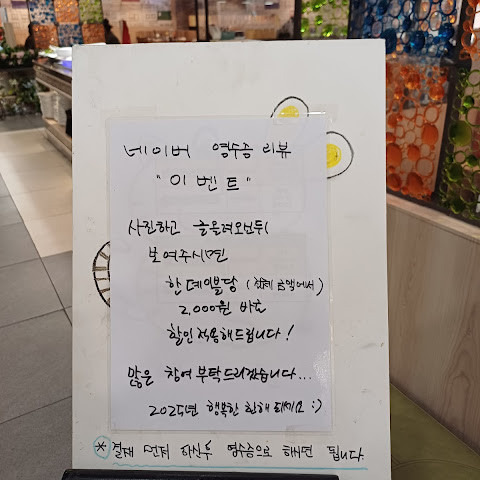 네이버 영수증 리뷰
"이벤트"
사진하고 글 올려
보여주시면
한 테이블당 (전체 금액에서)
2,000원 바로
할인 적용해드립니다!
많은 참여 부탁드리겠습니다...
2025년 행복한 한해 되세요 :)
* 결제 먼저 하신후 영수증으로 하시면 됩니다.